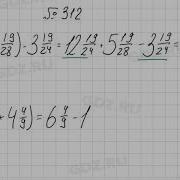 № 312
19/28) - 3 19/24 = 12 19/24 + 5 19/28 - 3 19/24 =
+ 4 4/9) = 6 4/9 - 1